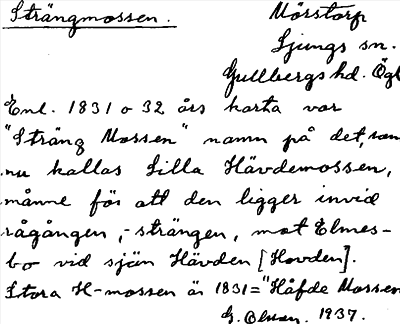 Strängmossen. Mörstorp
Ljungs sn.
Gullbergs hd. Ögl
Enl. 1831 o 32 års karta var
"Sträng Mossen" namn på det, som
nu kallas Lilla Hävdemossen,
månne för att den ligger invid
rågången, -strängen, mot Elmes-
bo vid sjön Hävden [Hovden].
Stora H-mossen är 1831= "Håfde Mossen
G. Olsson. 1937.